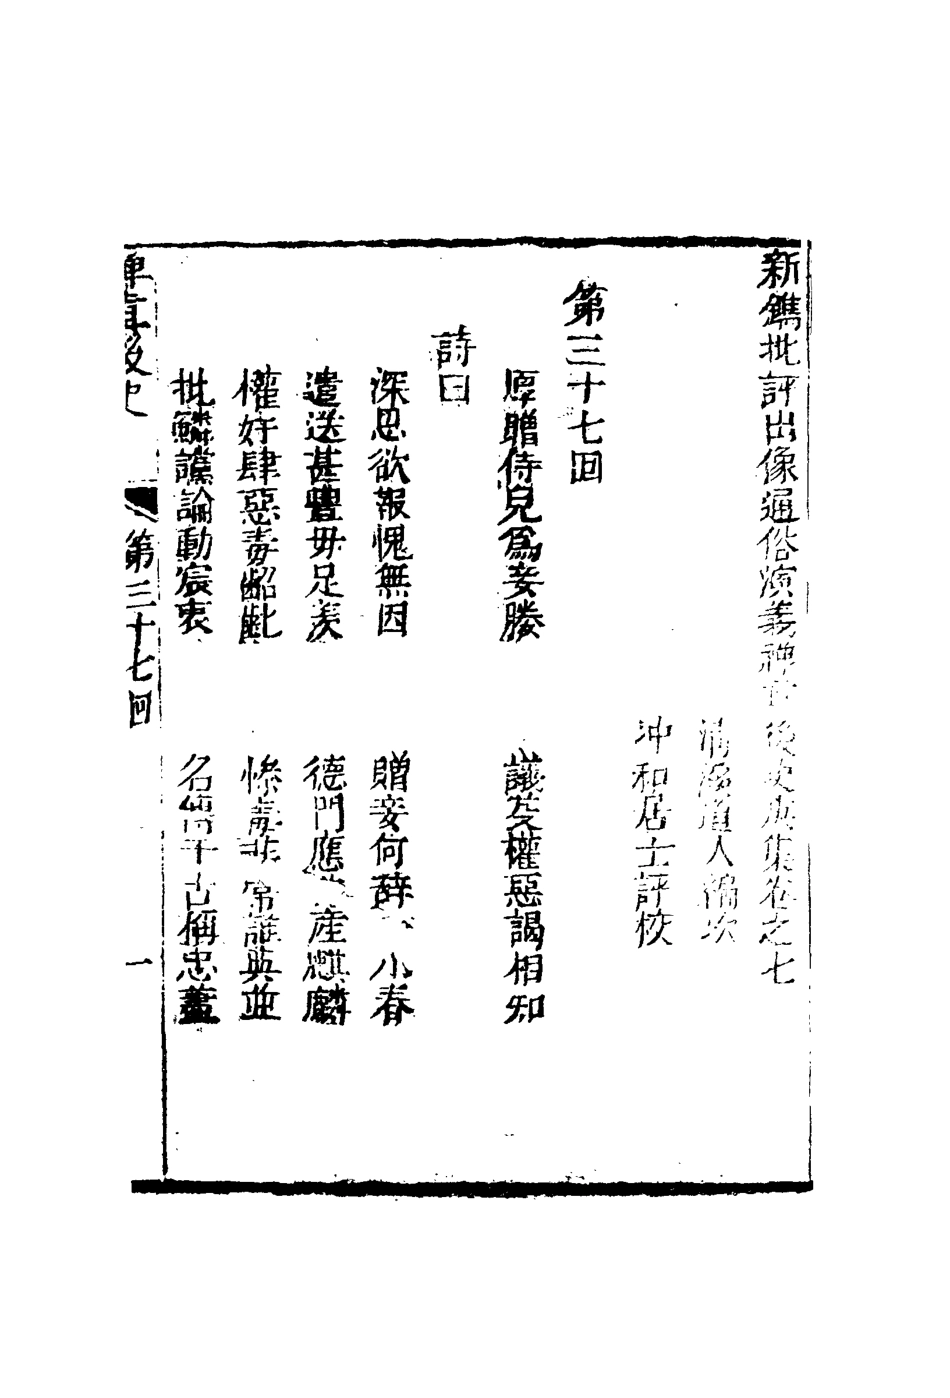 新鐫批評出像通俗演義禪真後史集卷之七
清溪道人編次
冲和居士評校
第三十七回
厚贈侍兒為妾媵　議芟權惡謁相知
詩曰
深思欲報愧無因　贈妾何辭小春
遣送甚豐毋足羨　德門應產麒麟
權奸肆惡毒齠齔　慘毒非常誰與並
批鱗讜論動宸衷　名傳千古稱忠藎
禪真後史　第三十七回　一